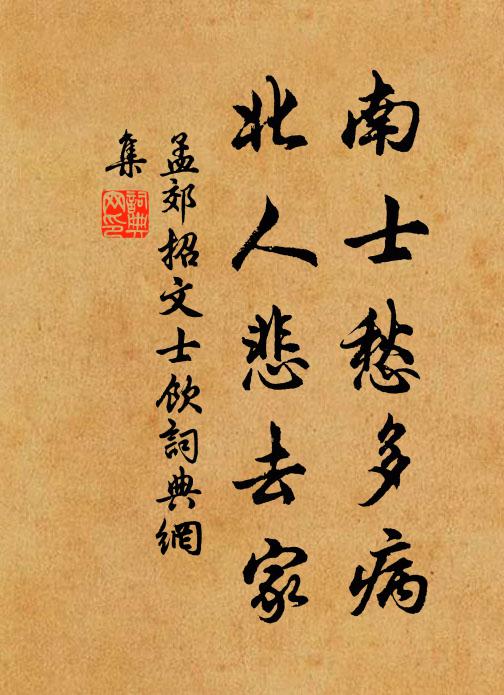 南士愁多病
北人悲去家
孟郊招文士飲詞典網
集
詞典
网印